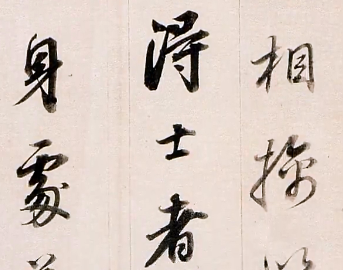 相擒
得士者
身處